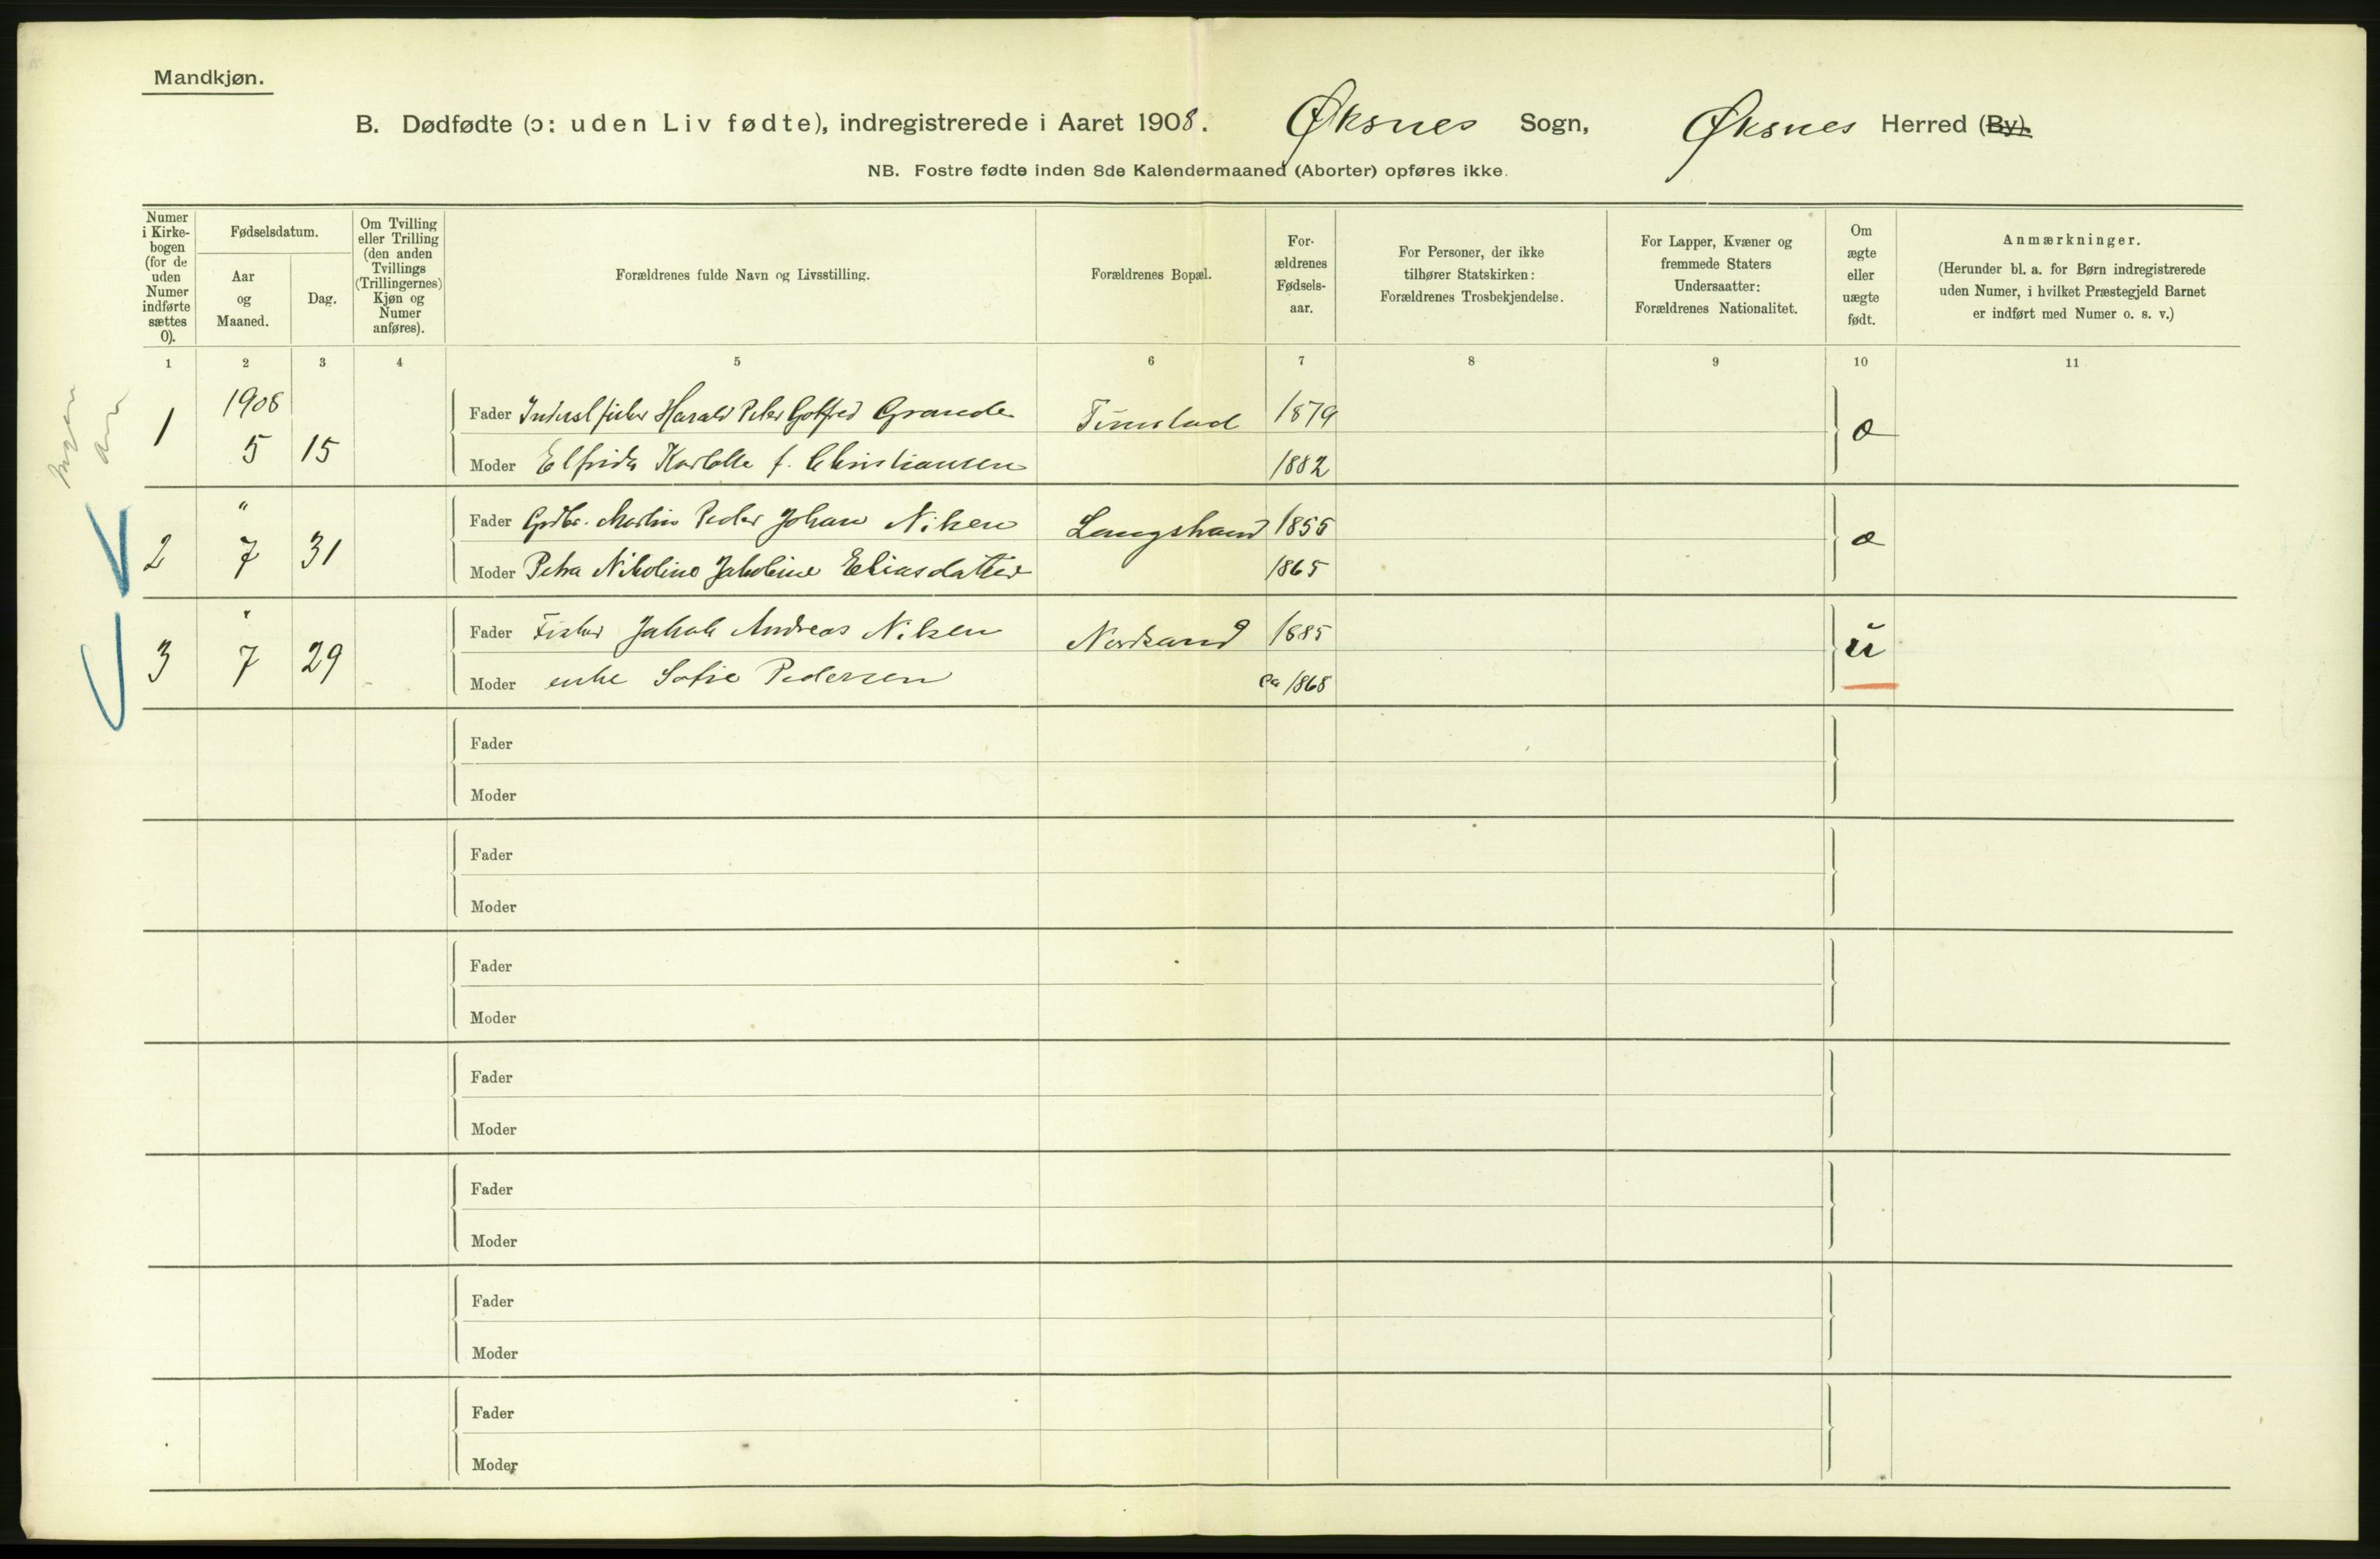 Mandkjøn.
B. Dødfødte (ɔ: uden Liv fødte), indregistrerede i Aaret 1908. Øksnes Sogn, Øksnes Herred (By).
NB. Fostre fødte inden 8de Kalendermaaned (Aborter) opføres ikke.
Numer i Kirke-bogen (for de uden Numer indførte sættes 0).
Fødselsdatum.
Aar og Maaned.
Dag.
Om Tvilling eller Trilling (den anden Tvillings (Trillingernes) Kjøn og Numer anføres).
Forældrenes fulde Navn og Livsstilling.
Forældrenes Bopæl.
For-ældrenes Fødsels-aar.
For Personer, der ikke tilhører Statskirken: Forældrenes Trosbekjendelse.
For Lapper, Kvæner og fremmede Staters Undersaatter: Forældrenes Nationalitet.
Om ægte eller uægte født.
Anmærkninger.
(Herunder bl. a. for Børn indregistrerede uden Numer, i hvilket Præstegjeld Barnet er indført med Numer o. s. v.)
1 2 3 4 5 6 7 8 9 10 11
1908
1 5 15
Fader Inderst fisker Harald Peter Gotfred Grande Tinnstad 1879
Moder Elfrida f. Christiansen 1882
æ
"
2 7 31
Fader Grdbr. Peder Johan Nilsen 1855
Moder Petra Nikoline Jakobine Eliasdatter 1865
æ
"
3 7 29
Fader Fisker Jakob Andreas Nilsen Nordsand 1885
Moder enke Sofie Pedersen ca 1868
u
Fader
Moder
Fader
Moder
Fader
Moder
Fader
Moder
Fader
Moder
Fader
Moder
Fader
Moder